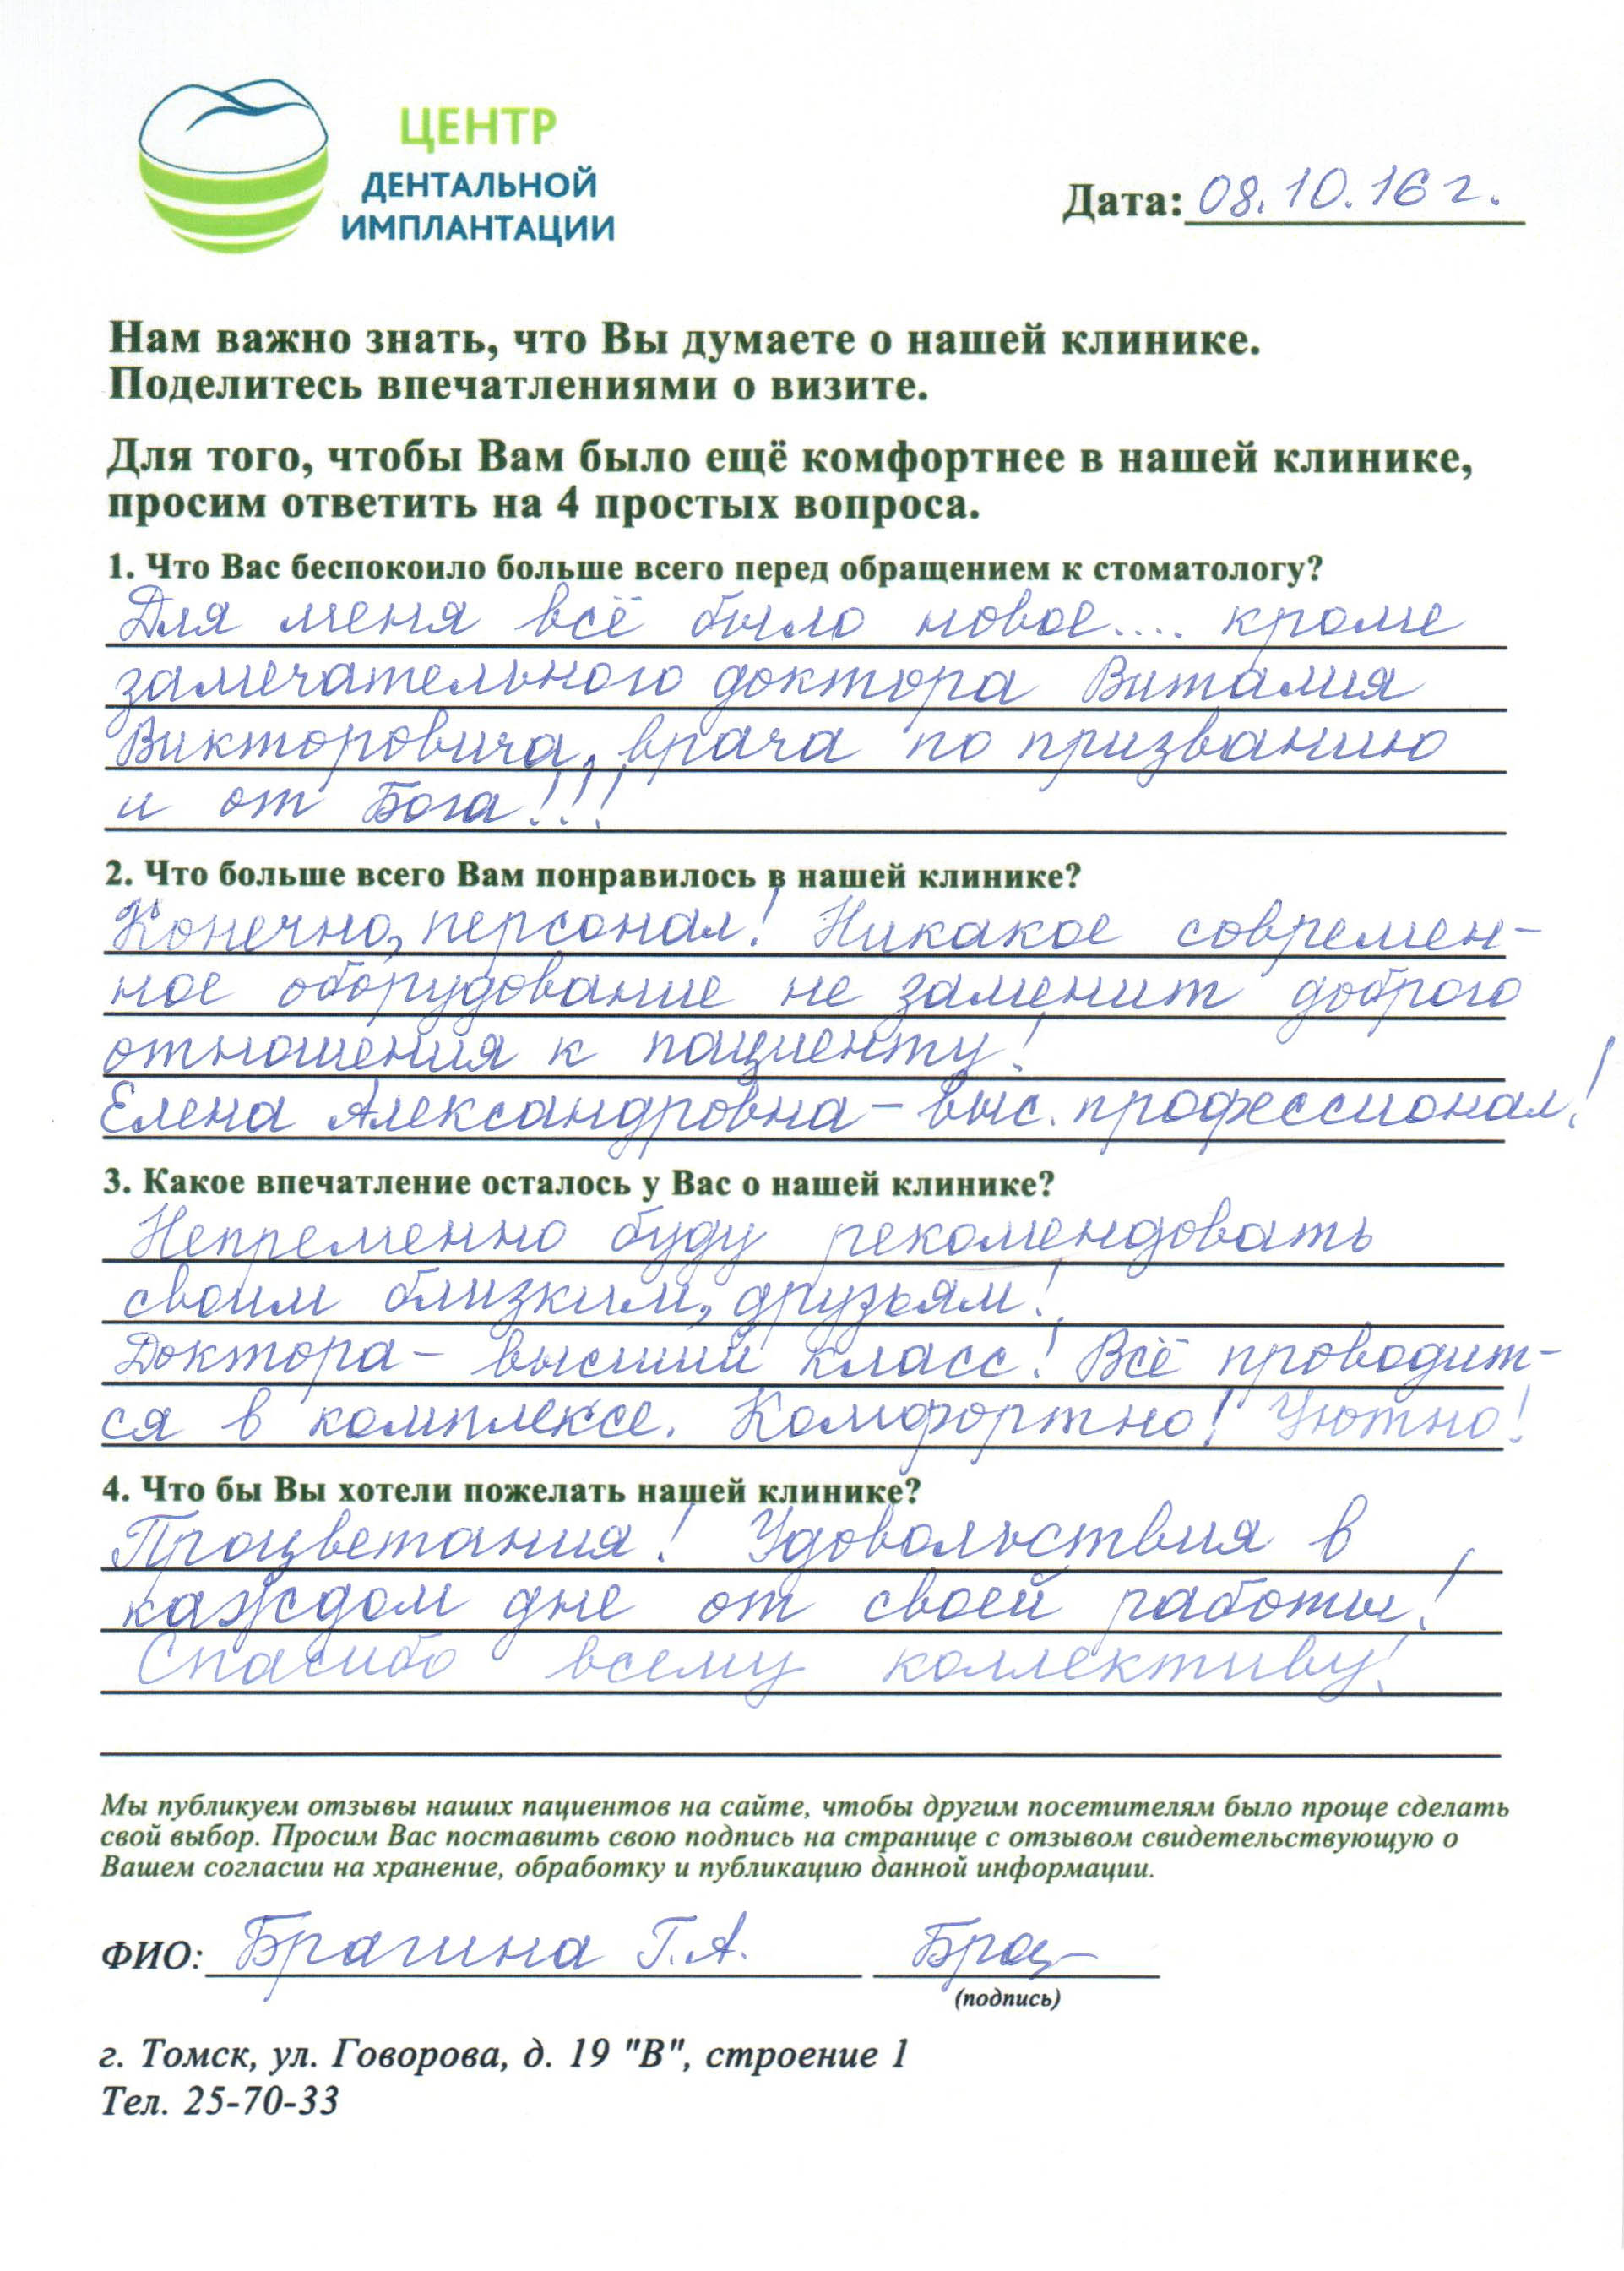 ЦЕНТР
ДЕНТАЛЬНОЙ
ИМПЛАНТАЦИИ
Дата: 08.10.16 г.
Нам важно знать, что Вы думаете о нашей клинике.
Поделитесь впечатлениями о визите.
Для того, чтобы Вам было ещё комфортнее в нашей клинике,
просим ответить на 4 простых вопроса.
1. Что Вас беспокоило больше всего перед обращением к стоматологу?
Для меня всё было новое.... кроме
замечательного доктора Виталия
Викторовича, врача по призванию
и от Бога!!!
2. Что больше всего Вам понравилось в нашей клинике?
Конечно, персонал! Никакое современ-
ное оборудование не заменит доброго
отношения к пациенту!
Елена Александровна - выс. профессионал!
3. Какое впечатление осталось у Вас о нашей клинике?
Непременно буду рекомендовать
своим близким, друзьям!
Доктора - высший класс! Всё проводит-
ся в комплексе. Комфортно! Уютно!
4. Что бы Вы хотели пожелать нашей клинике?
Процветания! Удовольствия в
каждом дне от своей работы!
Спасибо всему коллективу!
Мы публикуем отзывы наших пациентов на сайте, чтобы другим посетителям было проще сделать
свой выбор. Просим Вас поставить свою подпись на странице с отзывом свидетельствующую о
Вашем согласии на хранение, обработку и публикацию данной информации.
ФИО: Брагина Г.А. Браг
(подпись)
г. Томск, ул. Говорова, д. 19 "В", строение 1
Тел. 25-70-33